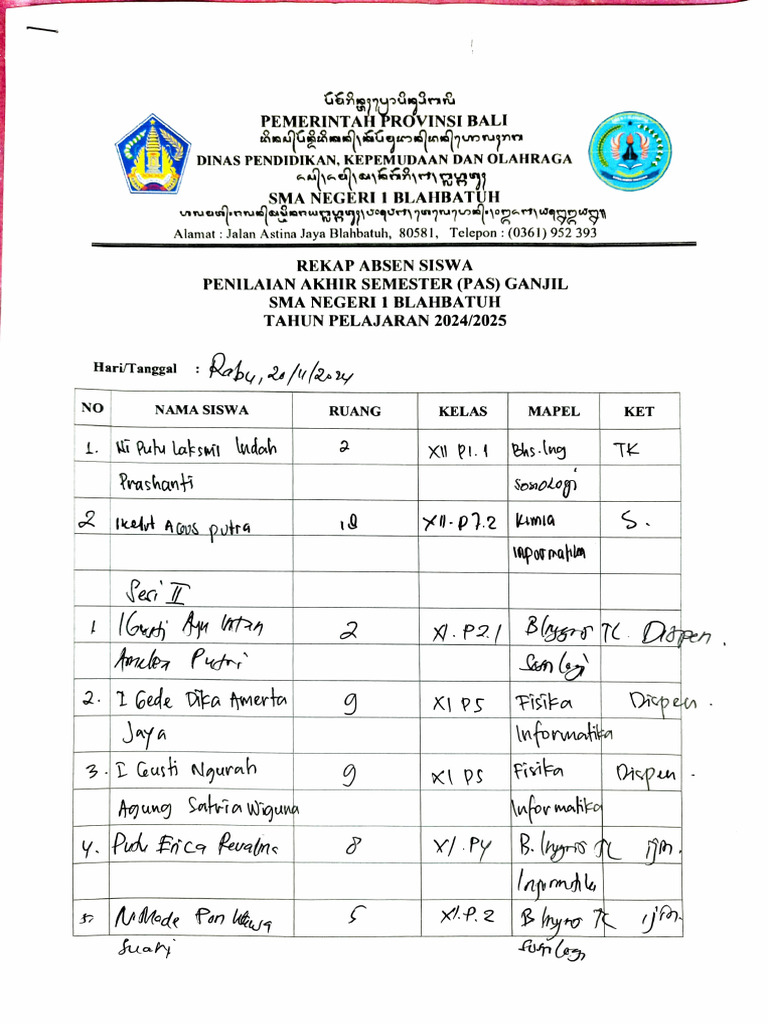 PEMERINTAH PROVINSI BALI
DINAS PENDIDIKAN, KEPEMUDAAN DAN OLAHRAGA
SMA NEGERI 1 BLAHBATUH
Alamat : Jalan Astina Jaya Blahbatuh, 80581, Telepon : (0361) 952 393
REKAP ABSEN SISWA
PENILAIAN AKHIR SEMESTER (PAS) GANJIL
SMA NEGERI 1 BLAHBATUH
TAHUN PELAJARAN 2024/2025
Hari/Tanggal : Rabu, 20/11/2024
NO NAMA SISWA RUANG KELAS MAPEL KET
1. Ni Putu Laksmi Indah 2 XII P1.1 Bhs.Ing TK
Prashanti Sosiologi
2 I Ketut Agus putra XII-P7.2 Kimia S.
Informatika
Sesi II
1 I Gusti Ayu Intan 2 XI.P2.1 B Inggris TL Dispen.
Putri
2. I Gede Dika Amerta 9 XI P5 Fisika Dispen.
Jaya Informatika
3. I Gusti Ngurah 9 XI P5 Fisika Dispen.
Agung Satria Wiguna Informatika
4. Putu Erica Revalina 8 XI.P4 B. Inggris TL ijin.
Informatika
5. Ni Made 5 XI.P.2 B Inggris TL ijin.